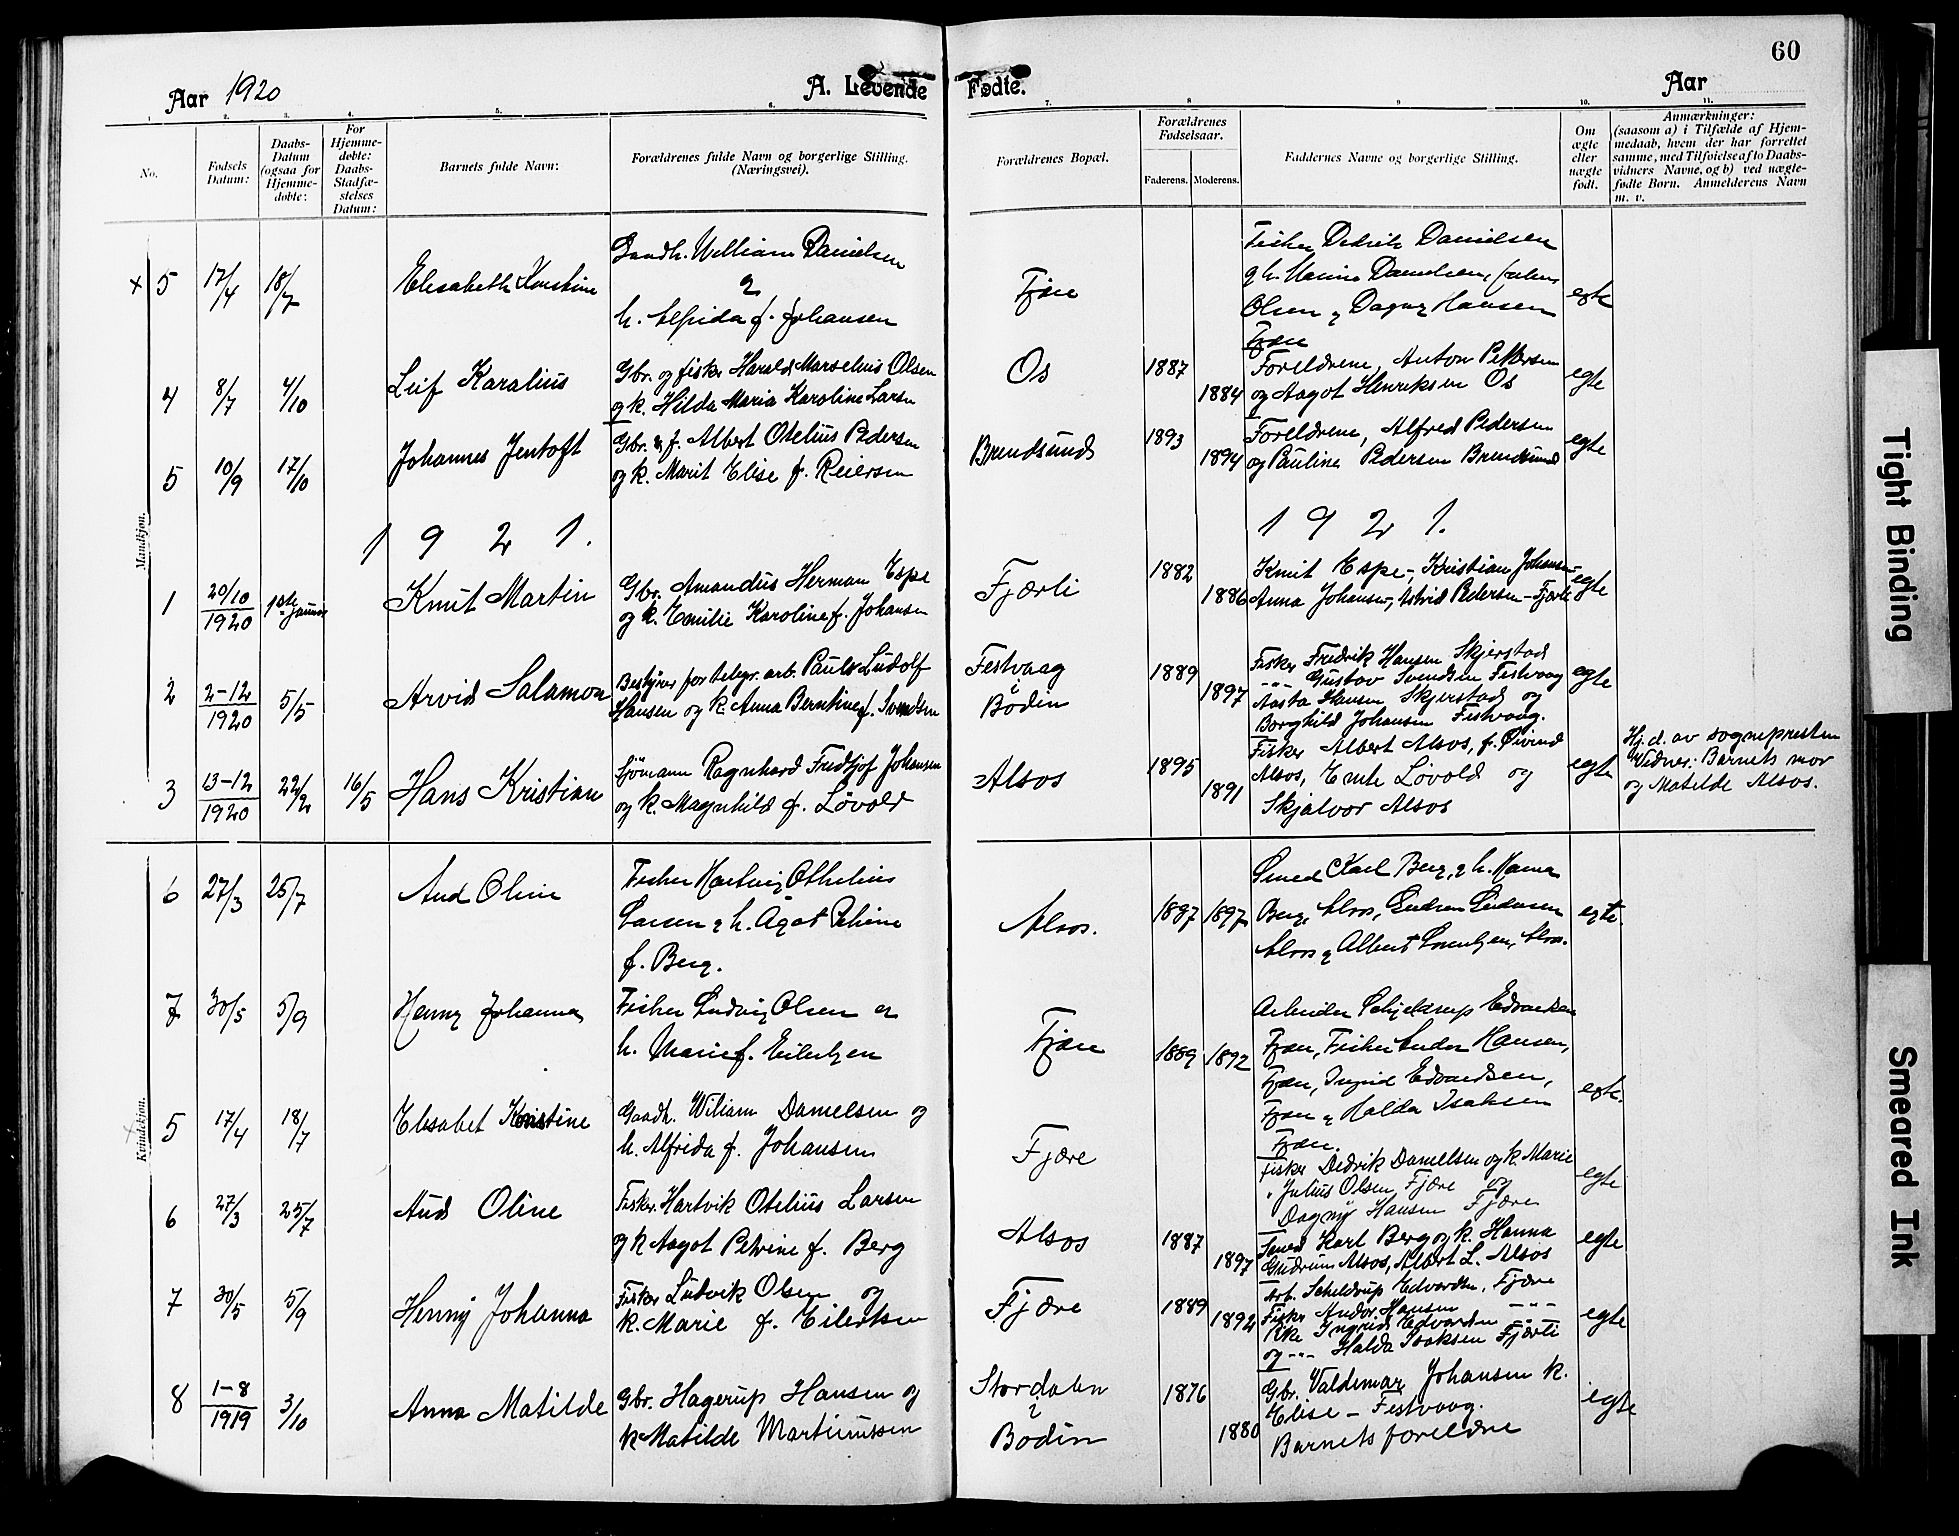 60
Aar 1920
A. Levende
Fødte.
Aar
1. 2. 3. 4. 5. 6. 7. 8 9 10. 11.
No.
Fødsels Datum:
Daabs-Datum (ogsaa for Hjemme-døbte:
For Hjemme-døbte: Daabs-Stadfæ-stelses Datum:
Barnets fulde Navn:
Forældrenes fulde Navn og borgerlige Stilling. (Næringsvei).
Forældrenes Bopæl.
Forældrenes Fødselsaar.
Faderens. Moderens.
Faddernes Navne og borgerlige Stilling.
Om ægte eller uægte født.
Anmærkninger: (saasom a) i Tilfælde af Hjem-medaab, hvem der har forrettet samme, med Tilføielse af to Daabs-vidners Navne, og b) ved uægte-fødte Børn. Anmelderens Navn m. v.
Mandkjøn.
x 5 17/4 18/7 Elisabeth Kristine
William Danielsen
h. f. Johansen
Fjære
Fisker Didrik Danielsen
Olsen & Dagny Hansen
Fjære
egte
4 8/7 4/10 Leif Karalius
Gbr. og fisker Harald Marselius Olsen
og k. Hilda Maria Karoline Larsen
Os 1887 1884
Foreldrene, Anton Pettersen
og Aagot Henriksen Os
egte
5 10/9 17/10 Johannes Jentoft
Gbr. & f. Albert Otelius Pedersen
og k. Marit Elise f. Reiersen
Brendsund 1893 1894
Foreldrene, Alfred Pedersen
og Pauline Pedersen Brendsund
egte
1 9 2 1.
1 9 2 1.
1 20/10 1920 1ste januar Knut Martin
Gbr. Amandus Herman Espe
og k. Emilie Karoline f. Johansen
Fjærli 1882 1886
Knut Espe-, Kristian Johansen-
Anna Johansen-, Astrid Pedersen - Fjærli
egte
2 2-12 1920 5/5 Arvid Salamon
Bestyrer for telegr. arb. Paul Ludolf
Hansen og k. Anna Berntine f. Svendsen
Festvaag i Bodin 1889 1897
Fisker Fredrik Hansen Skjerstad
-"- Gustav Svendsen Festvaag
Aasta Hansen Skjerstad og
Borghild Johansen Festvaag.
egte
3 13-12 1920 22/2 16/5 Hans Kristian
Sjömann Ragnhard Fridtjof Johansen
og k. Magnhild f. Lövold
Alsos 1895 1891
Fisker Albert Alsos, f. Øivind
Alsos, Lövold og
Skjalvor Alsos
egte
Hj.d. av sognepresten
Vidner: Barnets mor
og Matilde Alsos.
Kvindekjøn.
6 27/3 25/7 Aud Oline
Fisker Hartvig Othelius
Larsen & h. Ågot Petrine
f. Berg.
Alsos. 1887 1897
Smed Karl Berg, & h. Hanna
Berg, Alsos, Gudrun
Alsos & Albert Alsos.
egte.
7 30/5 5/9 Henny Johanna
Fisker Ludvig Olsen og
h. Marie f. Eilertsen
Fjære 1889 1892
Arbeider Schjeldrup Edvardsen
Fjære, Fisker Andor Hansen,
Fjære, Ingrid Edvardsen,
Fjære & Halda Isaksen
Fjære.
egte.
5 17/4 18/7 Elisabet Kristine
Gaardb. Wiliam Danielsen og
h. Alfrida f. Johansen
Fjære
fisker Didrik Danielsen og k. Marie
" Julius Olsen Fjære og
Dagny Hansen Fjære
egte
6 27/3 25/7 Aud Oline
Fisker Hartvik Otelius Larsen
og k Aagot Petrine f. Berg
Alsos 1887 1897
Smed Karl Berg og k. Hanna
Gudrun Alsos, Albert L. Alsos
egte
7 30/5 5/9 Henny Johanna
Fisker Ludvik Olsen og
k. Marie f. Eilertsen
Fjære 1889 1892
Arb. Scheldrup Edvardsen, Fjære
Fisker Andor Hansen -"-
Pike Ingrid Edvardsen -"-
og -"- Halda Isaksen Fjærli
egte
8 1-8 1919 3/10 Anna Matilde
Gbr. Hagerup Hansen og
k Matilde Martinussen
Stordalen i Bodin 1876 1880
Gbr. Valdemar Johansen k.
Elise - Festvaag.
Barnets foreldre
egte
Tight Binding
Smeared Ink